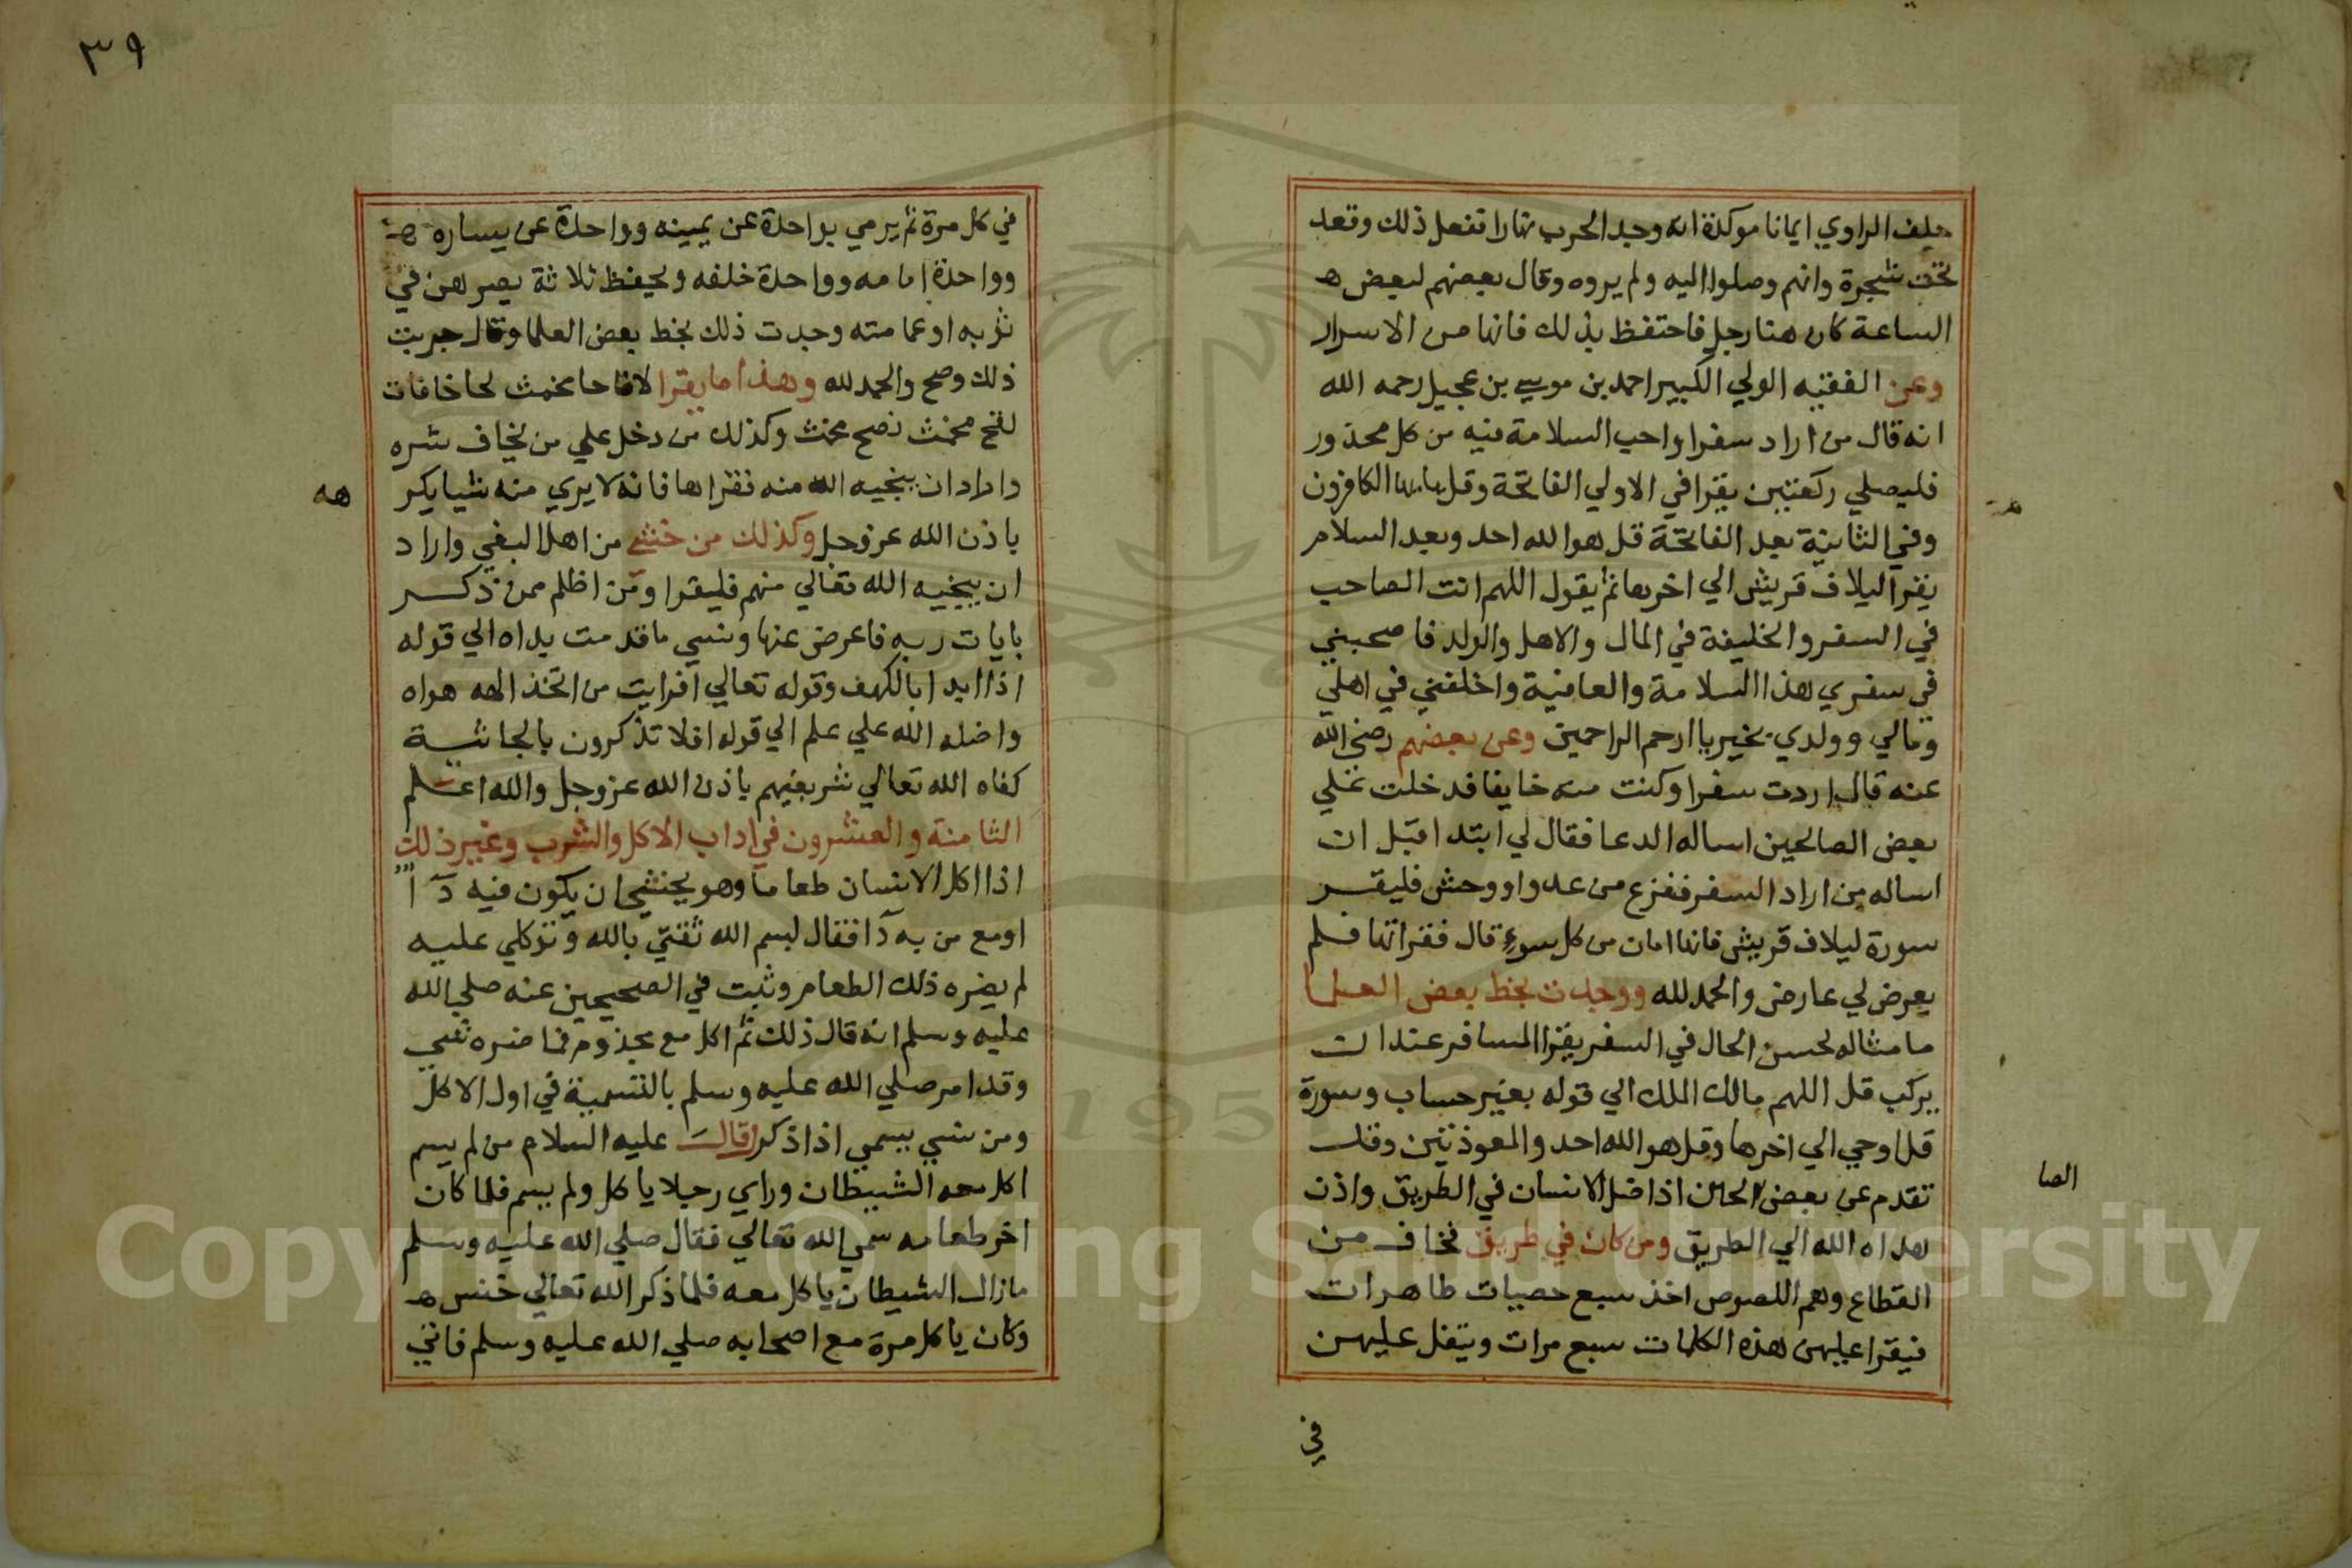 حلف الراوي ايمانا موكدة انه وجد الحرب نهارا تفعل ذلك وقعد
تحت شجرة وانهم وصلوا اليه ولم يروه وقال بعضهم لبعض هـ
الساعة كان هنا رجل فاحتفظ بذلك فانها من الاسرار
وعن الفقيه الولي الكبير احمد بن موسي بن عجيل رحمه الله
انه قال من اراد سفرا واحب السلامة فيه من كل محذور
فليصلي ركعتين يقرا في الاولي الفاتحة وقل يا ايها الكافرون
وفي الثانية بعد الفاتحة قل هو الله احد وبعد السلام
يقرا ليلاف قريش الي اخرها ثم يقول اللهم انت الصاحب
في السفر والخليفة في المال والاهل والولد فاصحبني
في سفري هذا السلامة والعافية واخلفني في اهلي
ومالي وولدي بخير يا ارحم الراحمين وعن بعضهم رضي الله
عنه قال اردت سفرا وكنت منه خايفا فدخلت علي
بعض الصالحين اساله الدعا فقال لي ابتدا قبل ان
اساله من اراد السفر ففزع من عدو او وحش فليقر
سورة ليلاف قريش فانها امان من كل سوء قال فقراتها فلم
يعرض لي عارض والحمد لله ووجدت بخط بعض العلما
ما مثاله لحسن الحال في السفر يقرا المسافر عند ان
يركب قل اللهم مالك الملك الي قوله بغير حساب وسورة
قل اوحي الي اخرها وقل هو الله احد والمعوذتين وقد
تقدم عن بعض الحين اذا ضل الانسان في الطريق واذن
الصا
هداه الله الي الطريق ومن كان في طريق نخاف من
القطاع وهم اللصوص اخذ سبع حصيات طاهرات
فيقرا عليهن هذه الكلمات سبع مرات ويتفل عليهن
في
٣٩
في كل مرة ثم يرمي بواحدة عن يمينه وواحدة عن يساره
وواحدة امامه وواحدة خلفه ويحفظ ثلاثة يصرهن في
ثوبه او عمامته وجدت ذلك بخط بعض العلما وقال جربت
ذلك وصح والحمد لله وهذا ما يقرا
وكذلك من دخل علي من يخاف شره
واراد ان ينجيه الله منه نقراها فانه لا يري منه شيا يكر
هه
باذن الله عز وجل وكذلك من خشي من اهل البغي واراد
ان ينجيه الله تعالي منهم فليقرا ومن اظلم ممن ذكر
بايات ربه فاعرض عنها ونسي ما قدمت يداه الي قوله
اذا ابدا بالكهف وقوله تعالي افرايت من اتخذ الهه هواه
واضله الله علي علم الي قوله افلا تذكرون بالجاثية
كفاه الله تعالي شر بغيهم باذن الله عز وجل والله اعلم
الثامنة والعشرون في اداب الاكل والشرب وغير ذلك
اذا اكل الانسان طعاما وهو يخشي ان يكون فيه دآ ا
او مع من به دآ فقال لبسم الله ثقتي بالله وتوكلي عليه
لم يضره ذلك الطعام وثبت في الصحيحين عنه صلي الله
عليه وسلم انه قال ذلك ثم اكل مع مجذوم فما ضره شي
وقد امر صلي الله عليه وسلم بالتسمية في اول الاكل
ومن نسي يسمي اذا ذكر قال عليه السلام من لم يسم
اكل معه الشيطان وراي رجلا ياكل ولم يسم فلما كان
اخر طعامه سمي الله تعالي فقال صلي الله عليه وسلم
مازال الشيطان ياكل معه فلما ذكر الله تعالي خنس هـ
وكان ياكل مرة مع اصحابه صلي الله عليه وسلم فاتي
1957
Copyright © King Saud University